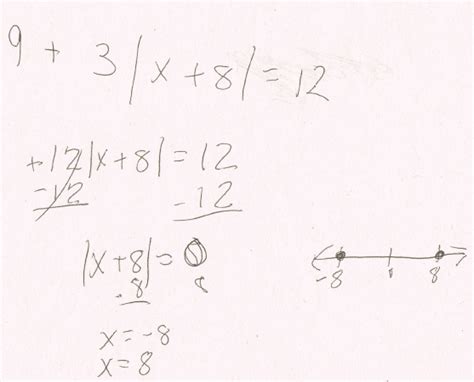 9 + 3|x+8|=12
+12|x+8|=12
-12 -12
|x+8|=0
-8
x=-8
x=8
-8 8